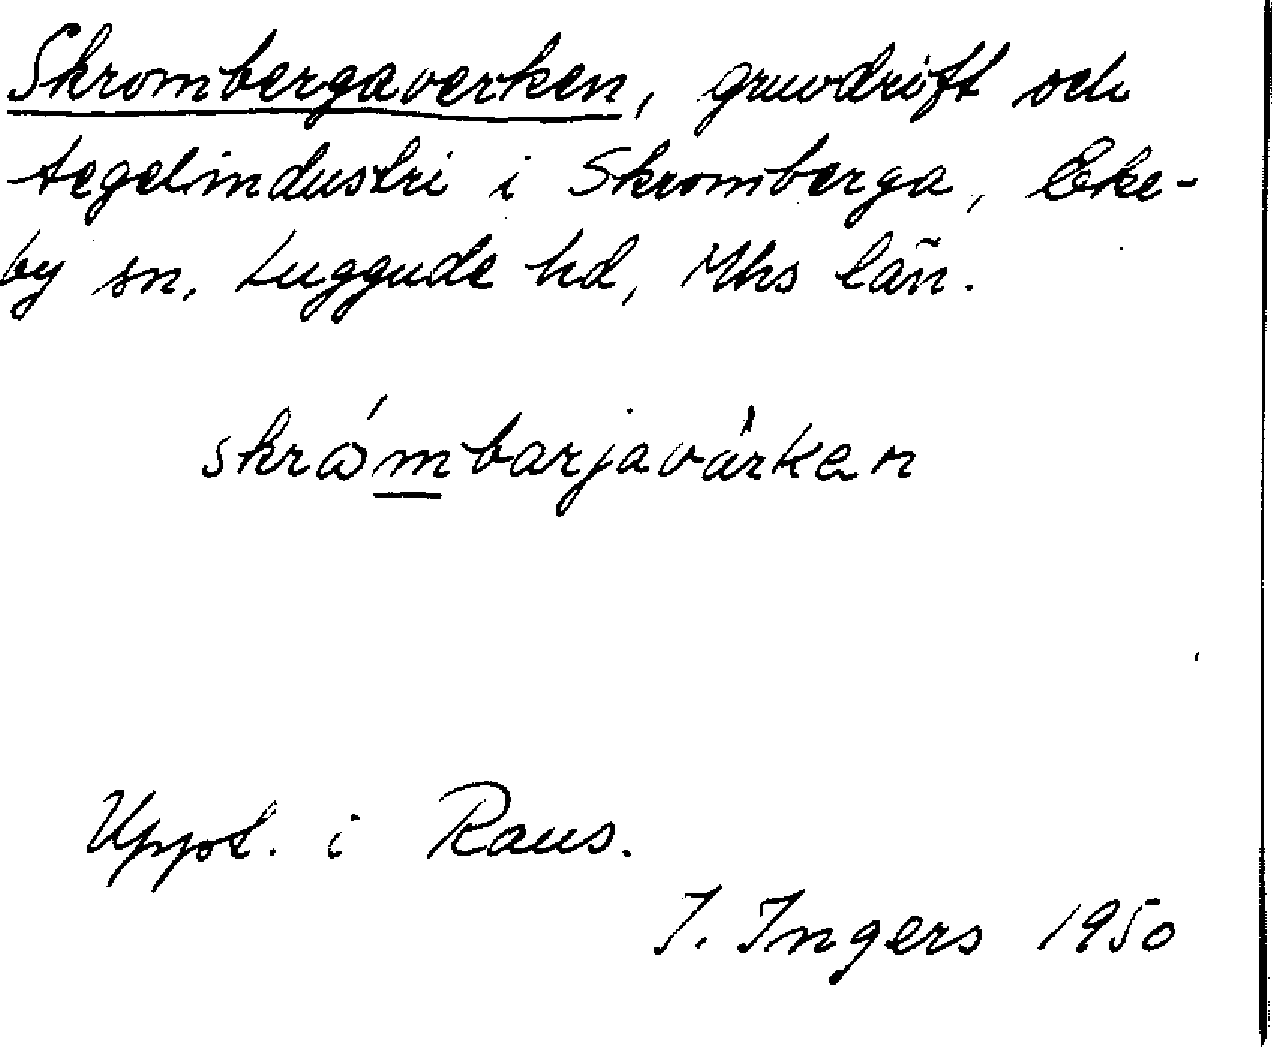 Skrombergaverken, gruvdrift och
tegelindustri i Skromberga, Eke-
by sn, Luggude hd, Mhs län.
skråmbarjavärken
Uppt. i Raus.
I. Ingers 1950